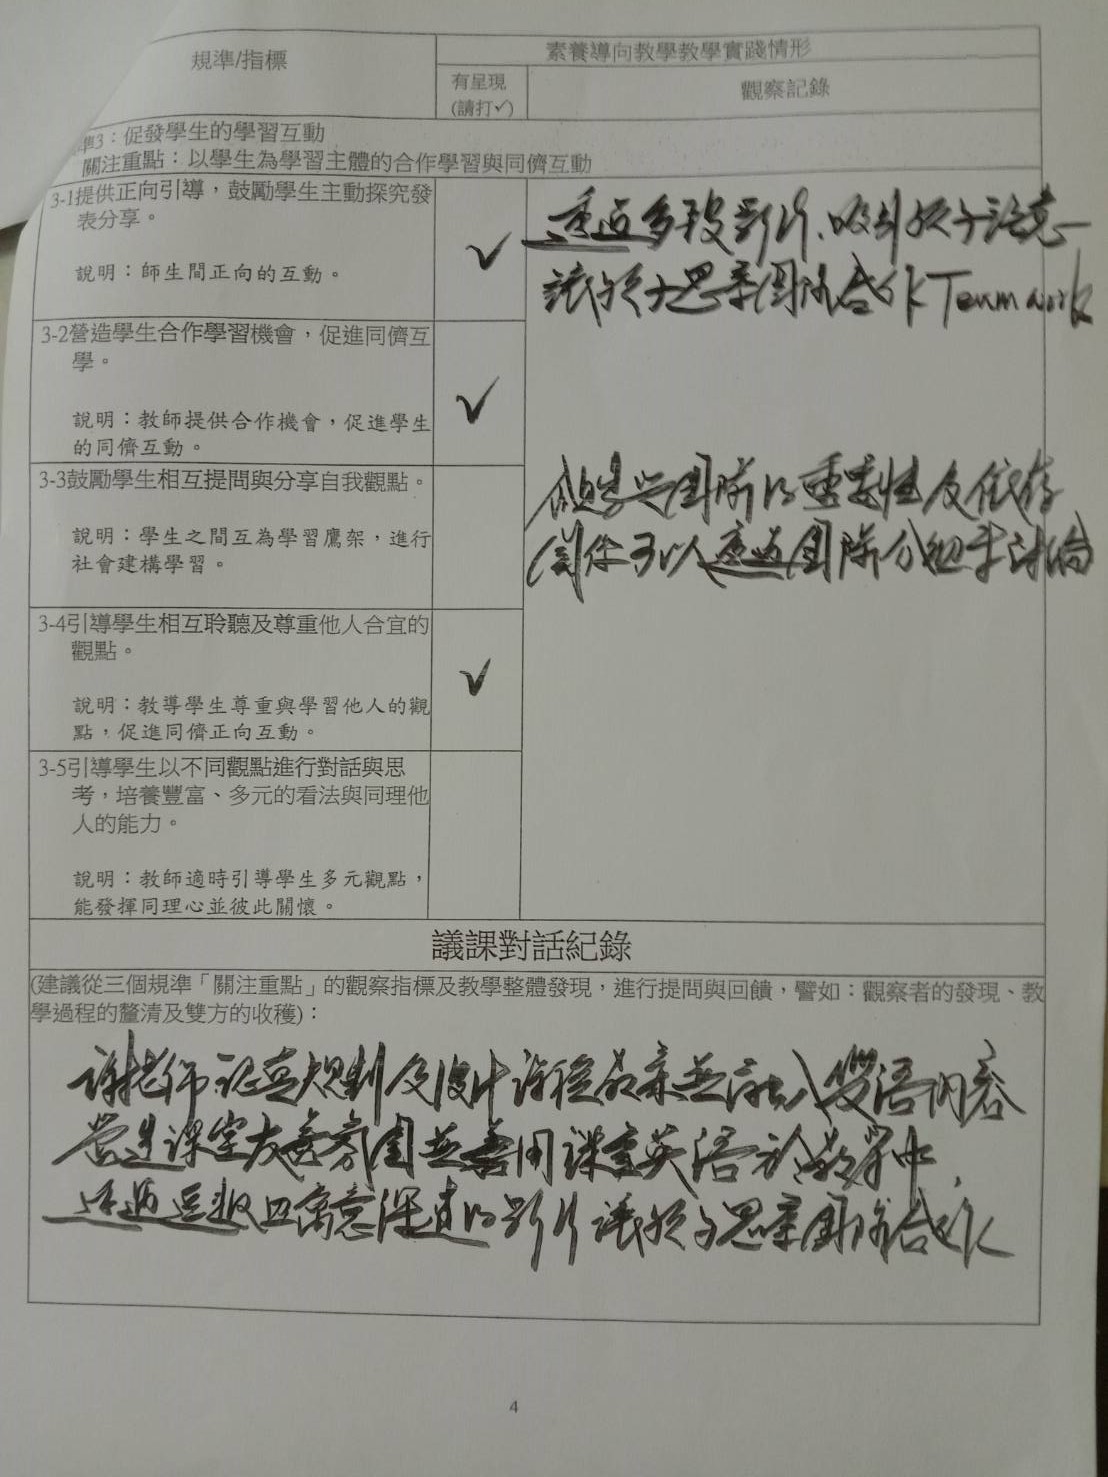 規準/指標
素養導向教學教學實踐情形
有呈現
(請打✓)
觀察記錄
準3：促發學生的學習互動
關注重點：以學生為學習主體的合作學習與同儕互動
3-1提供正向引導，鼓勵學生主動探究發
表分享。
說明：師生間正向的互動。
✓
透過多段影片、吸引孩子注意
讓孩子思索團隊合作Teamwork
3-2營造學生合作學習機會，促進同儕互
學。
說明：教師提供合作機會，促進學生
的同儕互動。
✓
3-3鼓勵學生相互提問與分享自我觀點。
說明：學生之間互為學習鷹架，進行
社會建構學習。
與團隊的重要性及依存
關係可以透過團隊分組來討論
3-4引導學生相互聆聽及尊重他人合宜的
觀點。
說明：教導學生尊重與學習他人的觀
點，促進同儕正向互動。
✓
3-5引導學生以不同觀點進行對話與思
考，培養豐富、多元的看法與同理他
人的能力。
說明：教師適時引導學生多元觀點，
能發揮同理心並彼此關懷。
議課對話紀錄
(建議從三個規準「關注重點」的觀察指標及教學整體發現，進行提問與回饋，譬如：觀察者的發現、教
學過程的釐清及雙方的收穫)：
謝老師認真規劃及設計課程教案並融入雙語內容
營造課室友善氛圍並善用課室英語於教學中，
透過逗趣且寓意深遠的影片讓孩子思索團隊合作
4